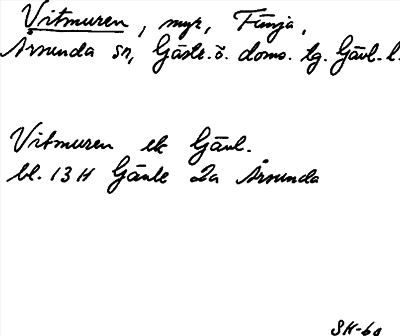 Vitmuren, myr, Finja,
Årsunda sn, Gästr. ö. doms. tg. Gävl. l.
Vitmuren ek Gävl.
bl. 13 H Gävle 2a Årsunda
SH-60